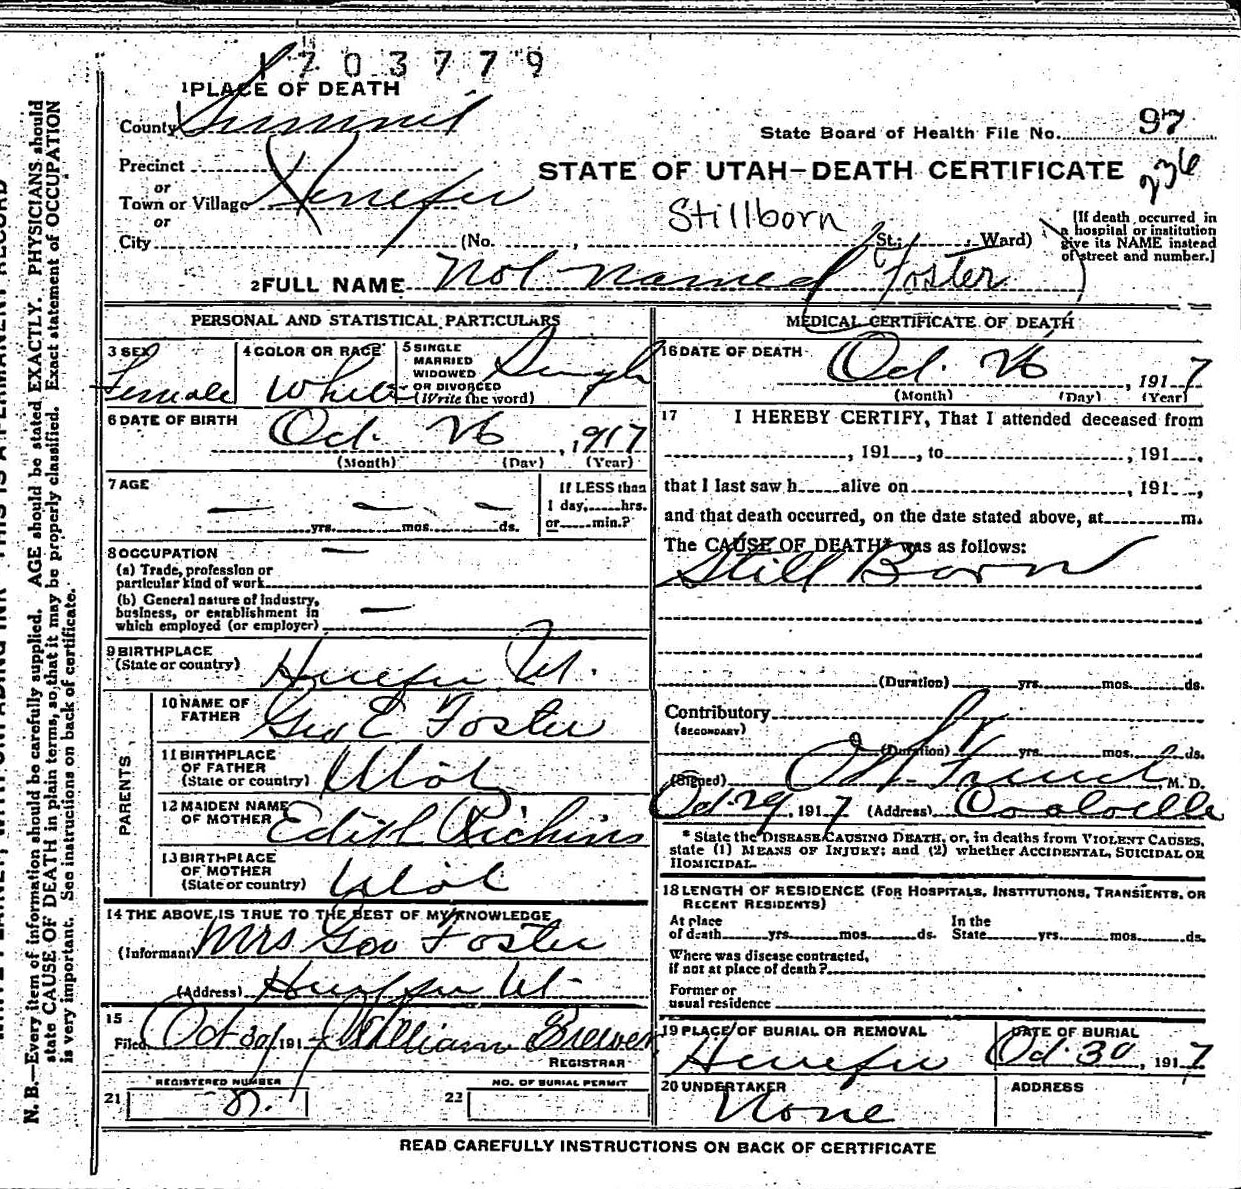 1703779
1 PLACE OF DEATH
County Summit
State Board of Health File No. 97
236
Precinct
STATE OF UTAH—DEATH CERTIFICATE
or
Town or Village Henefer
or
Stillborn
City (No. , St.; Ward)
[If death occurred in
a hospital or institution
give its NAME instead
of street and number.]
2 FULL NAME Not named Foster
PERSONAL AND STATISTICAL PARTICULARS
3 SEX Female
4 COLOR OR RACE White
5 SINGLE
MARRIED
WIDOWED
OR DIVORCED
(Write the word)
Single
6 DATE OF BIRTH
Oct. 26, 1917
(Month) (Day) (Year)
7 AGE
— yrs. — mos. — ds.
If LESS than
1 day, hrs.
or min.?
8 OCCUPATION —
(a) Trade, profession or
particular kind of work
(b) General nature of industry,
business, or establishment in —
which employed (or employer)
9 BIRTHPLACE
(State or country) Henefer Ut.
PARENTS
10 NAME OF
FATHER Geo E Foster
11 BIRTHPLACE
OF FATHER
(State or country) Utah
12 MAIDEN NAME
OF MOTHER Edith Richins
13 BIRTHPLACE
OF MOTHER
(State or country) Utah
14 THE ABOVE IS TRUE TO THE BEST OF MY KNOWLEDGE
(Informant) Mrs Geo Foster
(Address) Heneffer Ut
15
Filed Oct 30, 1917 William Brewer
REGISTRAR
REGISTERED NUMBER
21
NO. OF BURIAL PERMIT
22
MEDICAL CERTIFICATE OF DEATH
16 DATE OF DEATH
Oct. 26, 1917
(Month) (Day) (Year)
17 I HEREBY CERTIFY, That I attended deceased from
, 191 , to , 191 ,
that I last saw h alive on , 191 ,
and that death occurred, on the date stated above, at m.
The CAUSE OF DEATH* was as follows:
Still Born
(Duration) yrs. mos. ds.
Contributory
(SECONDARY)
(Duration) yrs. mos. ds.
(Signed) , M. D.
Oct 29, 1917 (Address) Coalville
* State the DISEASE CAUSING DEATH, or, in deaths from VIOLENT CAUSES,
state (1) MEANS OF INJURY; and (2) whether ACCIDENTAL, SUICIDAL OR
HOMICIDAL.
18 LENGTH OF RESIDENCE (FOR HOSPITALS, INSTITUTIONS, TRANSIENTS, OR
RECENT RESIDENTS)
At place
of death yrs. mos. ds.
In the
State yrs. mos. ds.
Where was disease contracted,
if not at place of death?
Former or
usual residence
19 PLACE OF BURIAL OR REMOVAL
Henefer
DATE OF BURIAL
Oct. 30, 1917
20 UNDERTAKER
None
ADDRESS
READ CAREFULLY INSTRUCTIONS ON BACK OF CERTIFICATE
N. B.—Every item of information should be carefully supplied. AGE should be stated EXACTLY. PHYSICIANS should
state CAUSE OF DEATH in plain terms, so that it may be properly classified. Exact statement of OCCUPATION
is very important. See instructions on back of certificate.